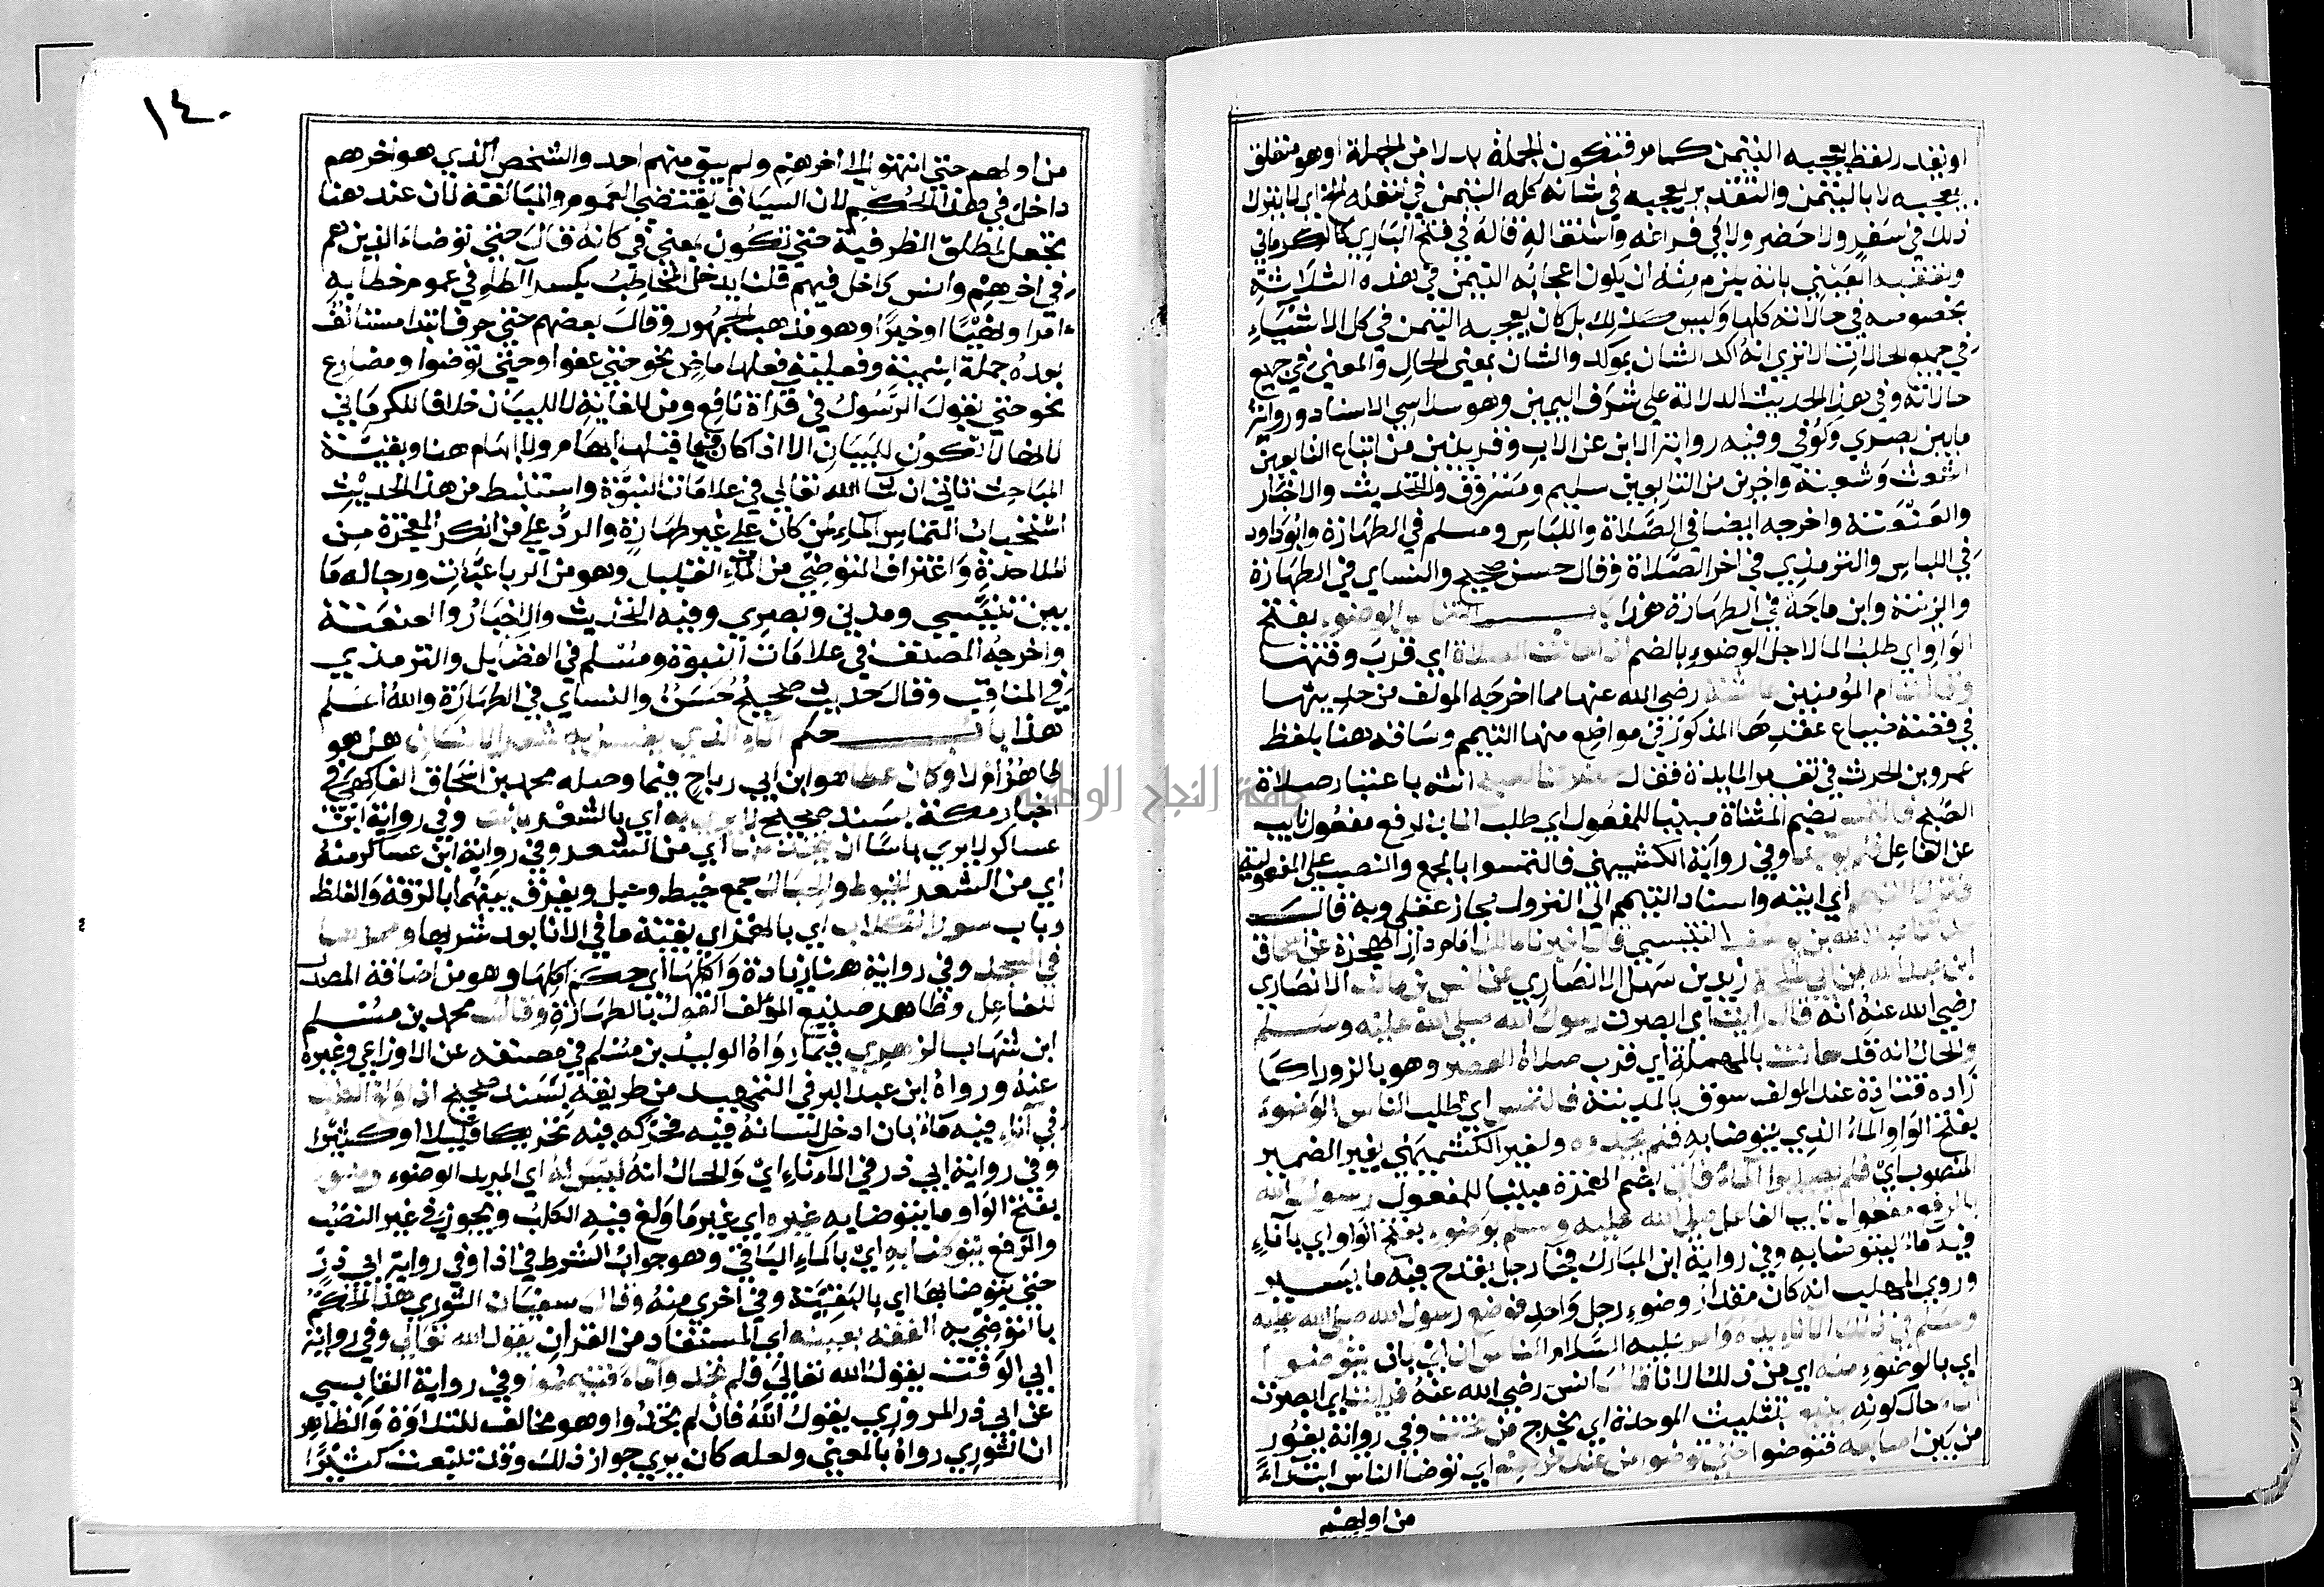 او بتقدير لفظ يعجبه التيمن كما مر فتكون الجملة بدلا من الجملة او هو متعلق
بيعجبه لا بالتيمن والتقدير يعجبه في شانه كله التيمن في تنعله الخ اي لا يترك
ذلك في سفر ولا حضر ولا في فراغه واشتغاله قاله في فتح الباري كالكرماني
وتعقبه العيني بانه يلزم منه ان يكون اعجابه التيمن في هذه الثلاثة
مخصوصه في حالاته كلها وليس كذلك بل كان يعجبه التيمن في كل الاشياء
في جميع الحالات الا تري انه اكد الشان بموكد والشان بمعني الحال والمعني في جميع
حالاته وفي هذا الحديث الدلالة علي شرف اليمين وهو سداسي الاسناد ورواته
ما بين بصري وكوفي وفيه رواية الابن عن الاب وقرينين من اتباع التابعين
اشعث وشعبة واخرين من التابعين سليم ومسروق والتحديث والاخبار
والعنعنة واخرجه ايضا في الصلاة واللباس ومسلم في الطهارة وابو داود
في اللباس والترمذي في اخر الصلاة وقال حسن صحيح والنساي في الطهارة
والزينة وابن ماجة في الطهارة هذا باب التماس الوضوء بفتح
الواو اي طلب الما لاجل الوضوء بالضم اذا حانت الصلاة اي قرب وقتها
وقالت ام المؤمنين عائشة رضي الله عنها مما اخرجه المولف من حديثها
في قصة ضياع عقدها المذكور في مواضع منها التيمم وساقه هنا بلفظ
عمرو بن الحرث في تفسير المايدة فقال حضرت الصبح انثه باعتبار صلاة
الصبح فالتمس بضم المثناة مبنيا للمفعول اي طلب الما بالرفع مفعول نايب
عن الفاعل فلم يوجد وفي رواية الكشميهني فالتمسوا بالجمع والنصب علي المفعولية
فنزل التيمم اي ايته واسناد التيمم الي النزول مجاز عقلي وبه قال
حدثنا عبد الله بن يوسف التنيسي قال اخبرنا مالك امام دار الهجرة عن اسحاق
ابن عبد الله بن ابي طلحة زيد بن سهل الانصاري عن انس بن مالك الانصاري
رضي الله عنه انه قال رايت اي ابصرت رسول الله صلي الله عليه وسلم
والحال انه قد حانت بالمهملة اي قرب صلاة العصر وهو بالزوراء كما
زاده قتادة عند المولف سوق بالمدينة فالتمس اي طلب الناس الوضوء
بفتح الواو الماء الذي يتوضا به فلم يجدوه ولغير الكشميهني بغير الضمير
المنصوب اي فلم يصيبوا الماء فاتي بضم الهمزة مبنيا للمفعول رسول الله
بالرفع مفعول نايب الفاعل صلي الله عليه وسلم بوضوء بفتح الواو اي باناء
فيه ماء ليتوضا به وفي رواية ابن المبارك فجا رجل بقدح فيه ما يسير
وروي المهلب انه كان مقدار وضوء رجل واحد فوضع رسول الله صلي الله عليه
وسلم في ذلك الاناء يده وامر عليه السلام الناس ان اي بان يتوضوا
اي بالوضوء منه اي من ذلك الانا قال انس رضي الله عنه فرايت اي ابصرت
الماء حال كونه ينبع بتثليث الموحدة اي يخرج من تحت وفي رواية يفور
من بين اصابعه فتوضوا حتي توضوا من عند اخرهم اي توضا الناس ابتداء
من اولهم
١٤٠
من اولهم حتي انتهوا الي اخرهم ولم يبق منهم احد والشخص الذي هو اخرهم
داخل في هذا الحكم لان السياق يقتضي العموم والمبالغة لان عند هنا
تجعل لمطلق الظرفية حتي تكون بمعني في كانه قال حتي توضا الذين هم
في اخرهم وانس داخل فيهم قلنا يدخل المخاطب بكسر الطاء في عموم خطابه
امرا ونهيا او خبرا وهو مذهب الجمهور وقال بعضهم حتي حرف ابتدا مستانف
بعده جملة اسمية وفعلية فعلها ماض نحو حتي عفوا وحتي توضوا ومضارع
نحو حتي يقول الرسول في قراة نافع ومن للغاية لا للبيان خلافا للكرماني
لانها لا تكون للبيان الا اذا كان فيما قبلها ابهام ولا ابهام هنا وبقية
المباحث تاتي ان شا الله تعالي في علامات النبوة واستنبط من هذا الحديث
استحباب التماس الماء لمن كان علي غير طهارة والرد علي من انكر المعجزة من
الملاحدة واغتراف المتوضي من الماء القليل وهو من الرباعيات ورجاله ما
بين تنيسي ومدني وبصري وفيه التحديث والاخبار والعنعنة
واخرجه المصنف في علامات النبوة ومسلم في الفضايل والترمذي
في المناقب وقال حديث صحيح حسن والنساي في الطهارة والله اعلم
هذا باب حكم الماء الذي يغسل به شعر الانسان هل هو
طاهر ام لا وكان عطا هو ابن ابي رباح فيما وصله محمد بن اسحاق الفاكهي في
اخبار مكة بسند صحيح لا يري به اي بالشعر باسا وفي رواية ابن
عساكر لا يري باسا ان يتخذ منها اي من الشعر وفي رواية ابن عساكر منه
اي من الشعر الخيوط والحبال جمع خيط وحبل ويفرق بينهما بالرقة والغلظ
وباب سور الكلاب اي بالهمز اي بقية ما في الانا بعد شربها وممرها
في المسجد وفي رواية هنا زيادة واكلها اي حكم اكلها وهو من اضافة المصدر
للفاعل وظاهر صنيع المؤلف القول بالطهارة وقال محمد بن مسلم
ابن شهاب الزهري فيما رواه الوليد بن مسلم في مصنفه عن الاوزاعي وغيره
عنه ورواه ابن عبد البر في التمهيد من طريقه بسند صحيح اذا ولغ الكلب
في اناء فيه ماء بان ادخل لسانه فيه فحركه فيه تحريكا قليلا او كثيرا
وفي رواية ابي ذر في الاناء اي والحال انه ليس له اي لمريد الوضوء وضوء
بفتح الواو ما يتوضا به غيره اي غير ما ولغ فيه الكلب ويجوز في غير النصب
والرفع يتوضا به اي بالماء الباقي وهو جواب الشرط في اذا وفي رواية ابي ذر
حتي يتوضا بها اي بالبقية وفي اخري منه وقال سفيان الثوري هذا الحكم
بالتوضي به الفقه بعينه اي المستفاد من القران يقول الله تعالي وفي رواية
ابي الوقت يقول الله تعالي فلم تجدوا ماء فتيمموا وفي رواية القابسي
عن ابي ذر المروزي يقول الله فان لم تجدوا وهو مخالف للتلاوة والظاهر
ان الثوري رواه بالمعني ولعله كان يري جواز ذلك وقد تتبعت كثيرا